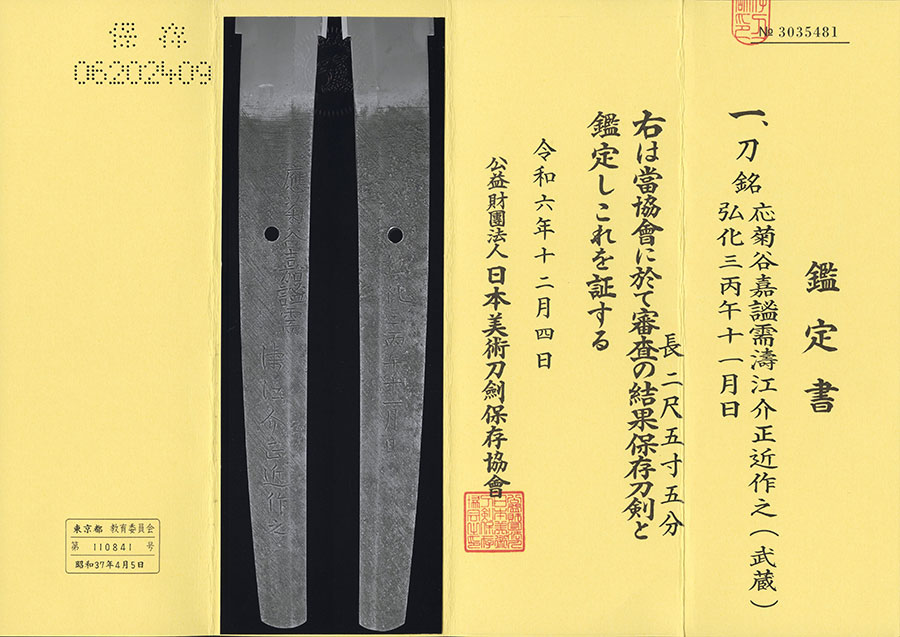 № 3035481
鑑定書
一、刀 銘 応菊谷嘉謐需濤江介正近作之(武蔵)
弘化三丙午十一月日
長二尺五寸五分
右は當協會に於て審査の結果保存刀剣と
鑑定しこれを証する
令和六年十二月四日
公益財團法人 日本美術刀劍保存協會
保存
06202409
東京都 教育委員会
第 110841 号
昭和37年4月5日